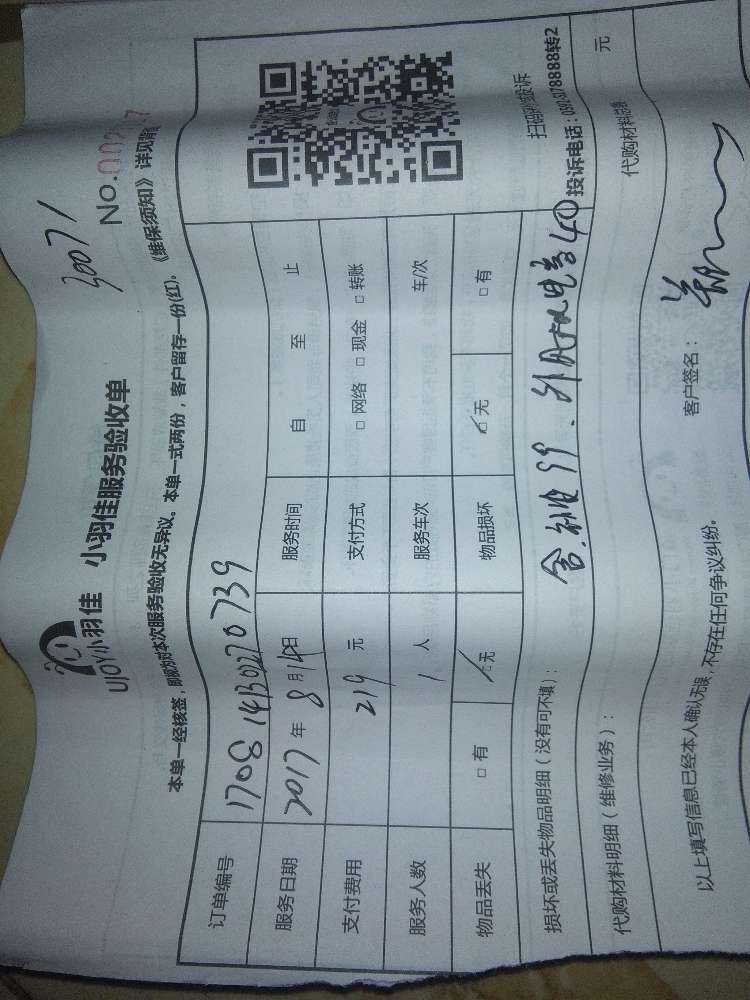 UJOY小羽佳 小羽佳服务验收单
30071
No.
本单一经核签，即视为对本次服务验收无异议。本单一式两份，客户留存一份(红)。《维保须知》详见背面
订单编号 170814130270739
服务日期 2017年8月14日 服务时间 自 至 止
支付费用 219 元 支付方式 □ 网络 □ 现金 □ 转账
服务人数 1 人 服务车次 车/次
物品丢失 □ 有 □ 无 物品损坏 □ 无 □ 有
扫码投诉
投诉电话：0592-8888转2
损坏或丢失物品明细（没有可不填）：
代购材料明细（维修业务）：
代购材料总费 元
以上填写信息已经本人确认无误，不存在任何争议纠纷。
客户签名：